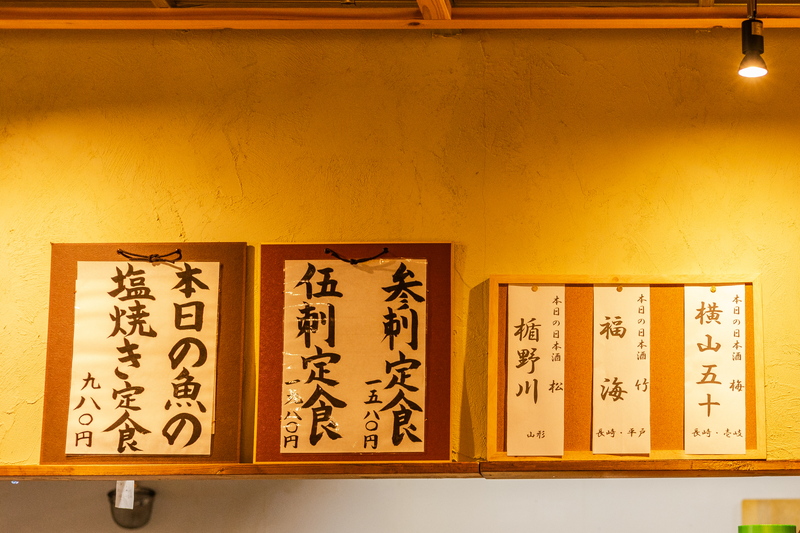 本日の魚の
塩焼き定食
九八〇円
参刺定食
一五八〇円
伍刺定食
一九八〇円
本日の日本酒 梅
横山五十
長崎・壱岐
本日の日本酒 竹
福海
長崎・平戸
本日の日本酒 松
楯野川
山形